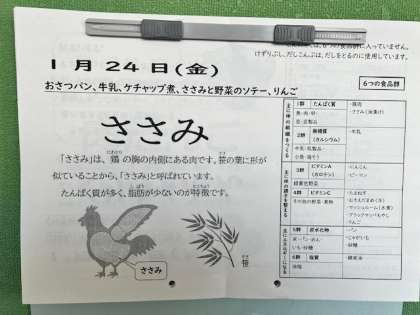 は、6つの食品群に入っていません。
けずりぶし、だしこんぶは、だしをとるのに使用しています。
1月24日(金)
おさつパン、牛乳、ケチャップ煮、ささみと野菜のソテー、りんご
6つの食品群
ささみ
「ささみ」は、鶏の胸の内側にある肉です。笹の葉に形が
似ていることから、「ささみ」と呼ばれています。
たんぱく質が多く、脂肪が少ないのが特徴です。
ささみ
笹
主に体の組織をつくる
1群 たんぱく質
魚・肉・卵・
豆・豆製品
・鶏肉
2群 無機質
(カルシウム)
牛乳・乳製品
・牛乳
主に体の調子を整える
3群 ビタミンA
(カロテン)
緑黄色野菜
・にんじん
・ピーマン
4群 ビタミンC
その他の野菜・果物
・たまねぎ
・マッシュルーム(水煮)
・りんご
5群 炭水化物
・パン
・じゃがいも
・砂糖
6群 脂質
油脂